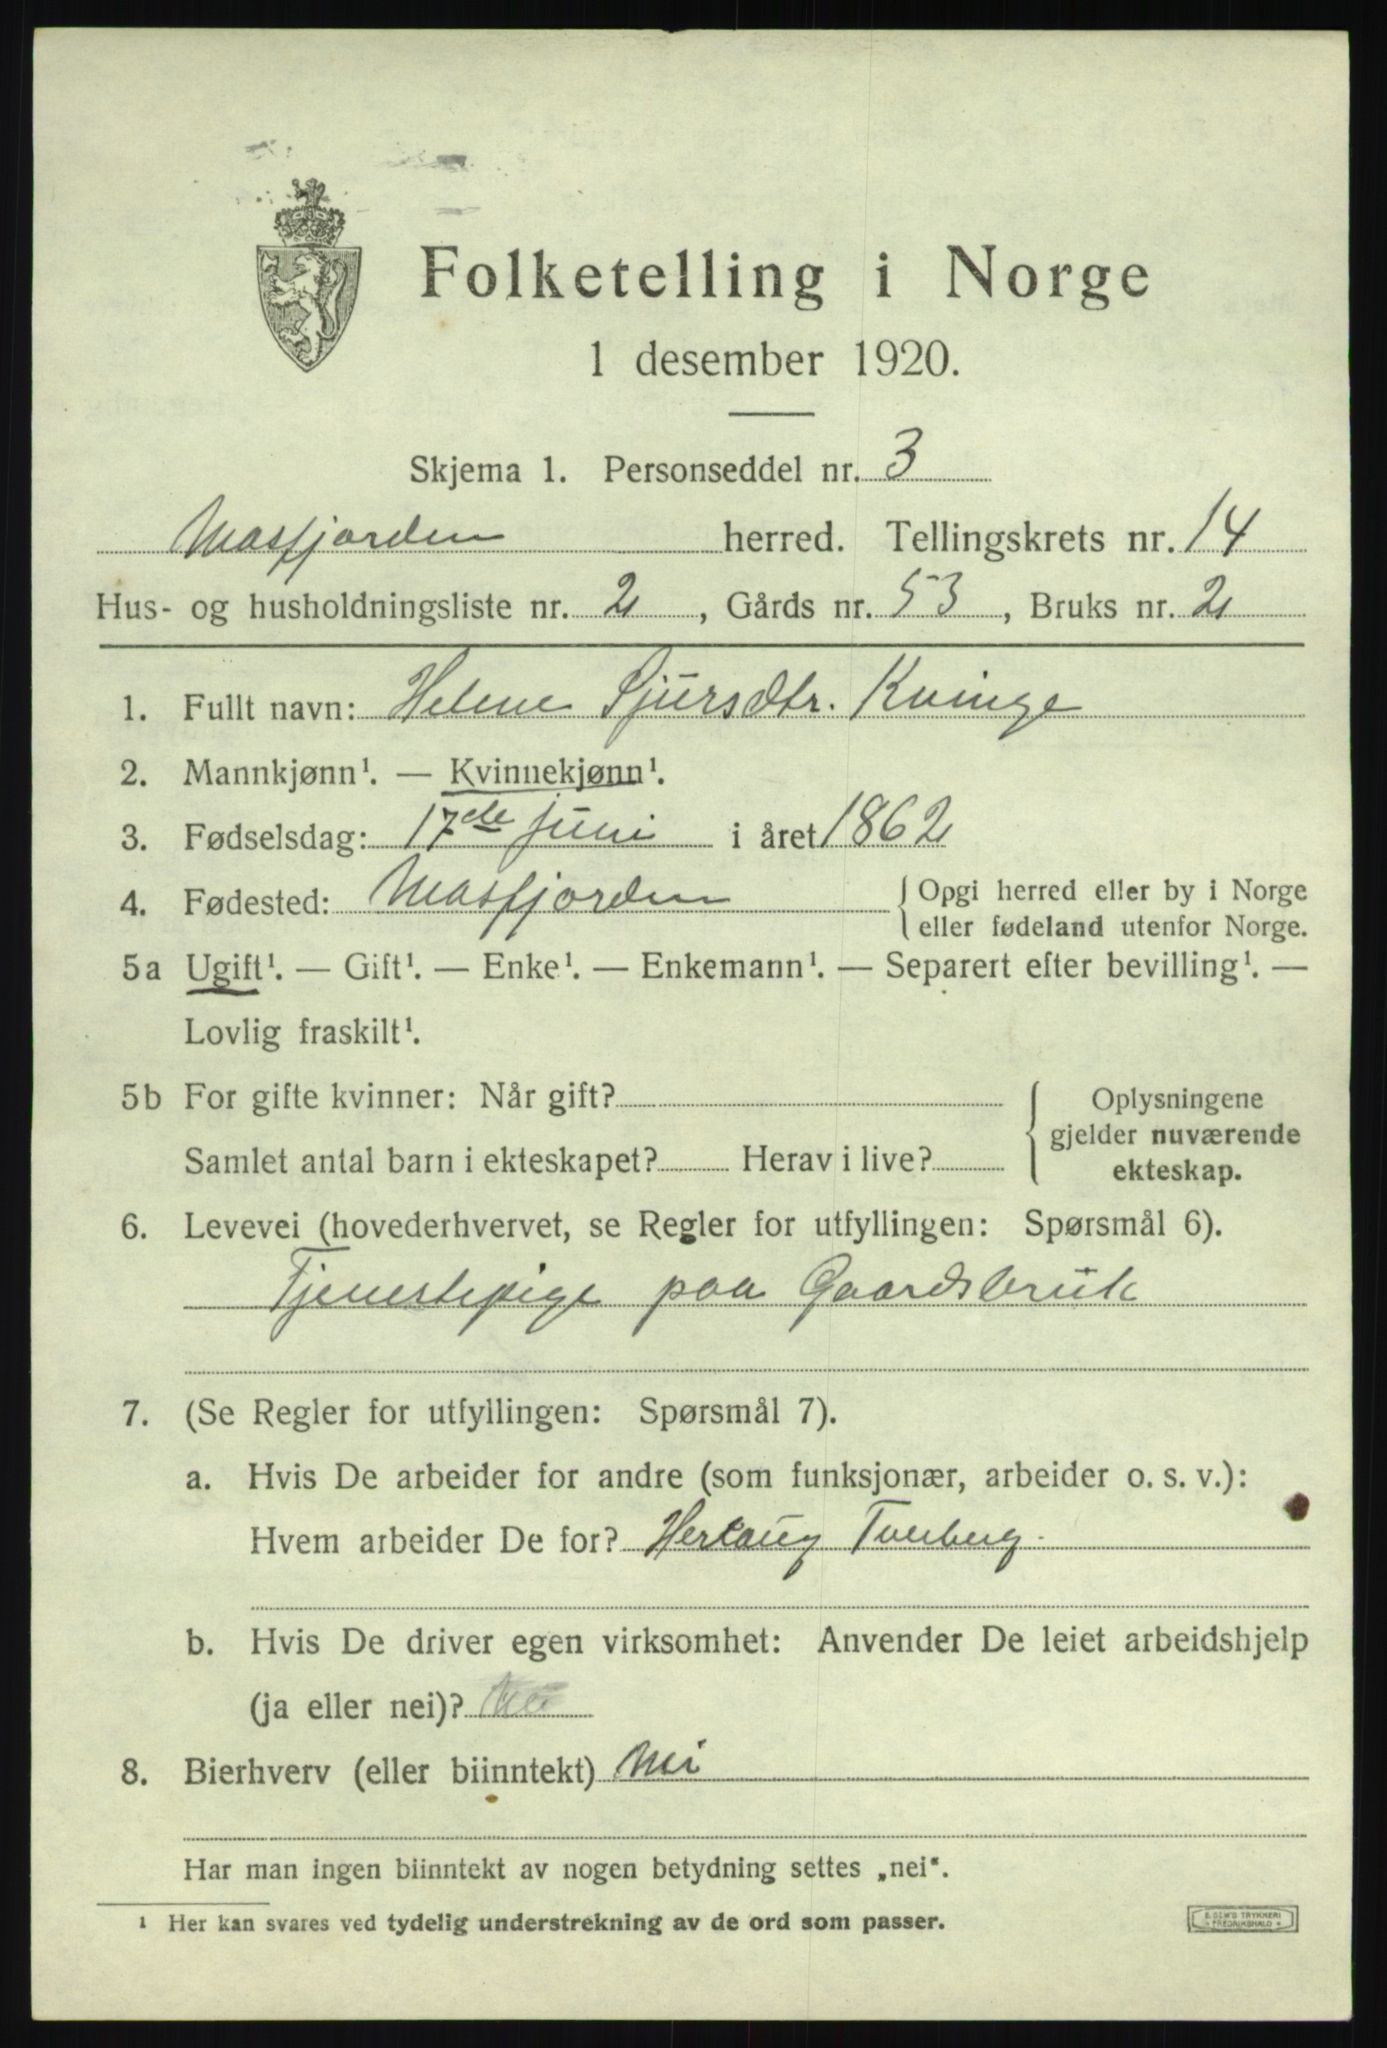 Folketelling i Norge
1 desember 1920.
Skjema 1. Personseddel nr. 3
Masfjorden herred. Tellingskrets nr. 14
Hus- og husholdningsliste nr. 2, Gårds nr. 53, Bruks nr. 2
1. Fullt navn: Helene Sjursdtr. Kvinge
2. Mannkjønn¹. — Kvinnekjønn¹.
3. Fødselsdag: 17de juni i året 1862
4. Fødested: Masfjorden { Opgi herred eller by i Norge
eller fødeland utenfor Norge.
5a Ugift¹. — Gift¹. — Enke¹. — Enkemann¹. — Separert efter bevilling¹. —
Lovlig fraskilt¹.
5b For gifte kvinner: Når gift? { Oplysningene
gjelder nuværende
Samlet antal barn i ekteskapet? Herav i live? ekteskap.
6. Levevei (hovederhvervet, se Regler for utfyllingen: Spørsmål 6).
Tjenestepige paa Gaardsbruk
7. (Se Regler for utfyllingen: Spørsmål 7).
a. Hvis De arbeider for andre (som funksjonær, arbeider o. s. v.):
Hvem arbeider De for? Herlaug Tverberg.
b. Hvis De driver egen virksomhet: Anvender De leiet arbeidshjelp
(ja eller nei)?
8. Bierhverv (eller biinntekt) Nei
Har man ingen biinntekt av nogen betydning settes „nei“.
¹ Her kan svares ved tydelig understrekning av de ord som passer.